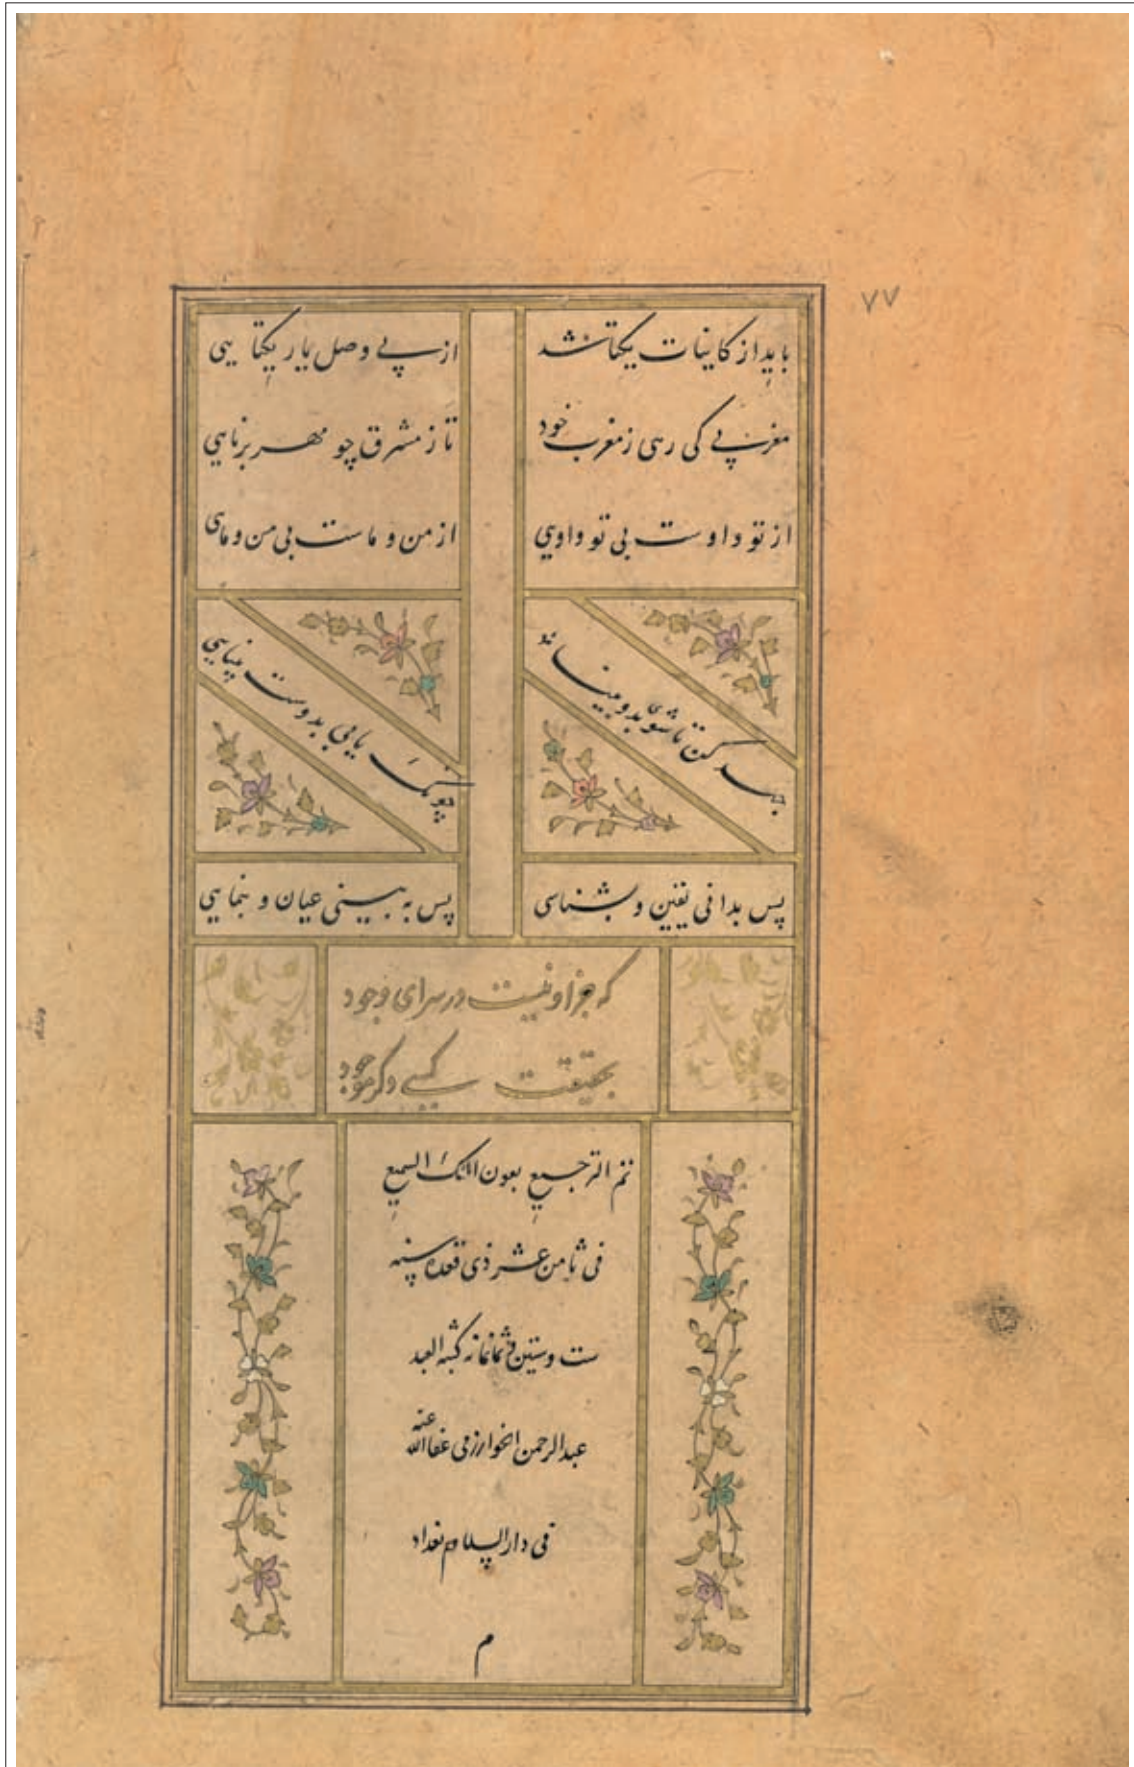 ٧٧
باید از کاینات یکتا شد
از پی وصل یار یکتایی
مغربی کی رهی ز مغرب خود
تا ز مشرق چو مهر برنایی
از تو و اوست بی تو و اویی
از من و ماست بی من و مای
جهد کن تا شوی بدو بینا
چونک یابی بدوست بینایی
پس بدانی یقین و بشناسی
پس به بینی عیان و بنمایی
که جز او نیست در سرای وجود
بحقیقت کسی دگر موجود
تم الترجیع بعون الملک السمیع
فی ثامن عشر ذی قعده سنه
ست وستین وثمانمانه کتبه العبد
عبدالرحمن الخوارزمی عفا الله عنه
فی دار السلام بغداد
م